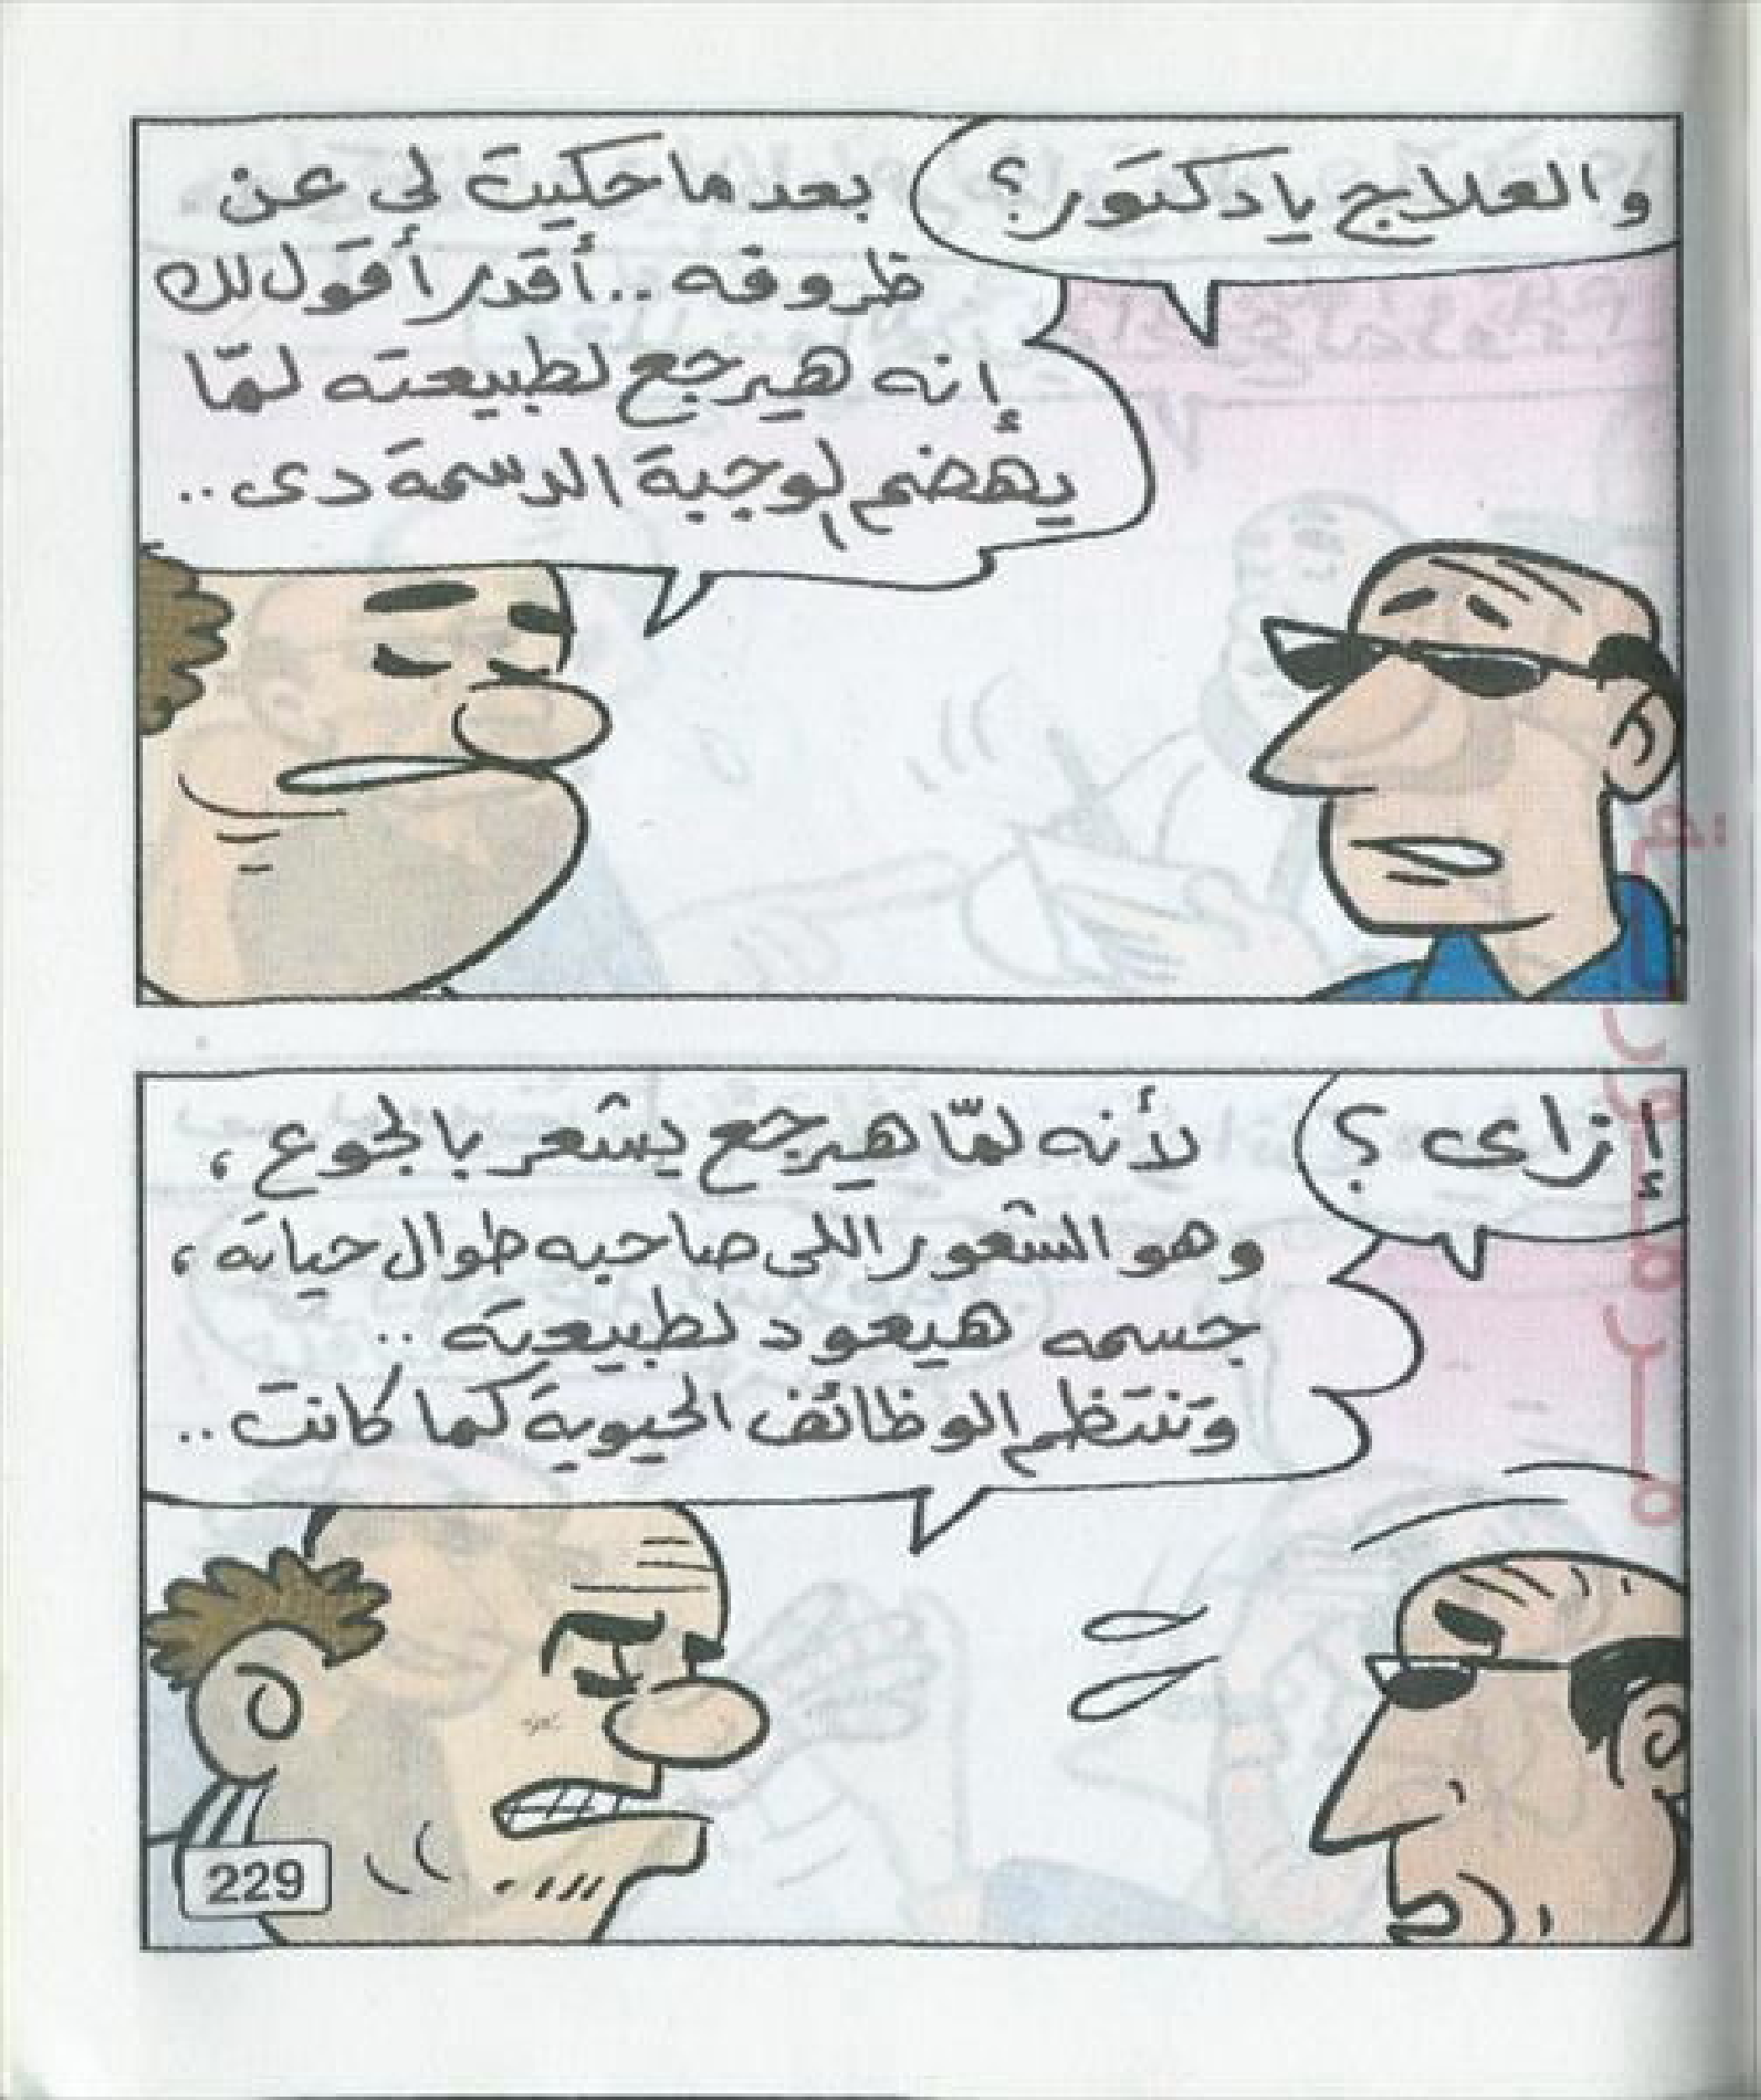 والعلاج يا دكتور؟
بعد ما حكيت لى عن
ظروفه.. أقدر أقول لك
إنه هيرجع لطبيعته لمّا
يهضم الوجبة الدسمة دى..
إزاى؟
لأنه لمّا هيرجع يشعر بالجوع،
وهو الشعور اللى صاحبه طوال حياته،
جسمه هيعود لطبيعته..
وتنتظم الوظائف الحيوية كما كانت..
229